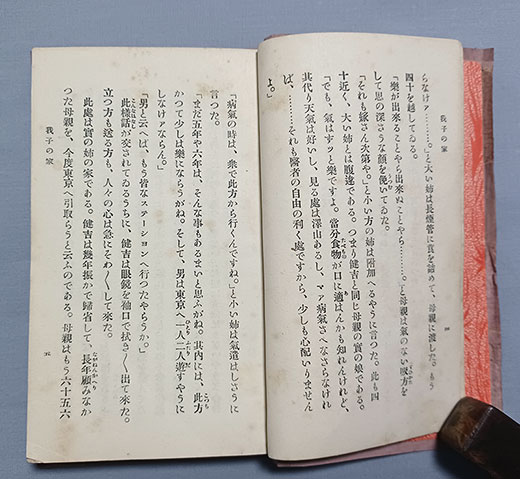 我子の家
らなけァ………。」と大い姉は長煙管に莨を詰めて、母親に渡した。もう
四十を越してゐる。
「樂が出來ることやら出來ぬことやら………。」と母親は氣のない眼方を
して思の深さうな顏を俛いてゐた。
「それも嫁さん次第や。」と小い方の姉は附加へるやうに言つた。此も四
十近く、大い姉とは腹違である。つまり健吉と同じ母親の實の娘である。
「でも、氣はずツと樂ですよ。當分食物が口に適はんかも知れんけれど、
其代り天氣は好いし、見る處は澤山あるし、マァ病氣さへなさらなけれ
ば、………それも醫者の自由の利く處ですから、少しも心配いりません
よ。」
「病氣の時は、衆で此方から行くんですね。」と小い姉は氣遣はしさうに
言つた。
「まだ五年や六年は、そんな事もあるまいと思ふがね。其内には、此方
かつて少しは樂にならうがね。そして、男は東京へ一人二人遊すやうに
しなけァならん。」
「男と云へば、もう皆なステーシヨンへ行つたやらうか。」
此樣話が交されてゐるうちに、健吉は眼鏡を袖口で拭き〱出て來た。
立つ方も送る方も、人々の心は急にそわ〱して來た。
此處は實の姉の家である。健吉は幾年振かで歸省して、長年顧みなか
つた母親を、今度東京へ引取らうと云ふのである。母親はもう六十五六
我子の家